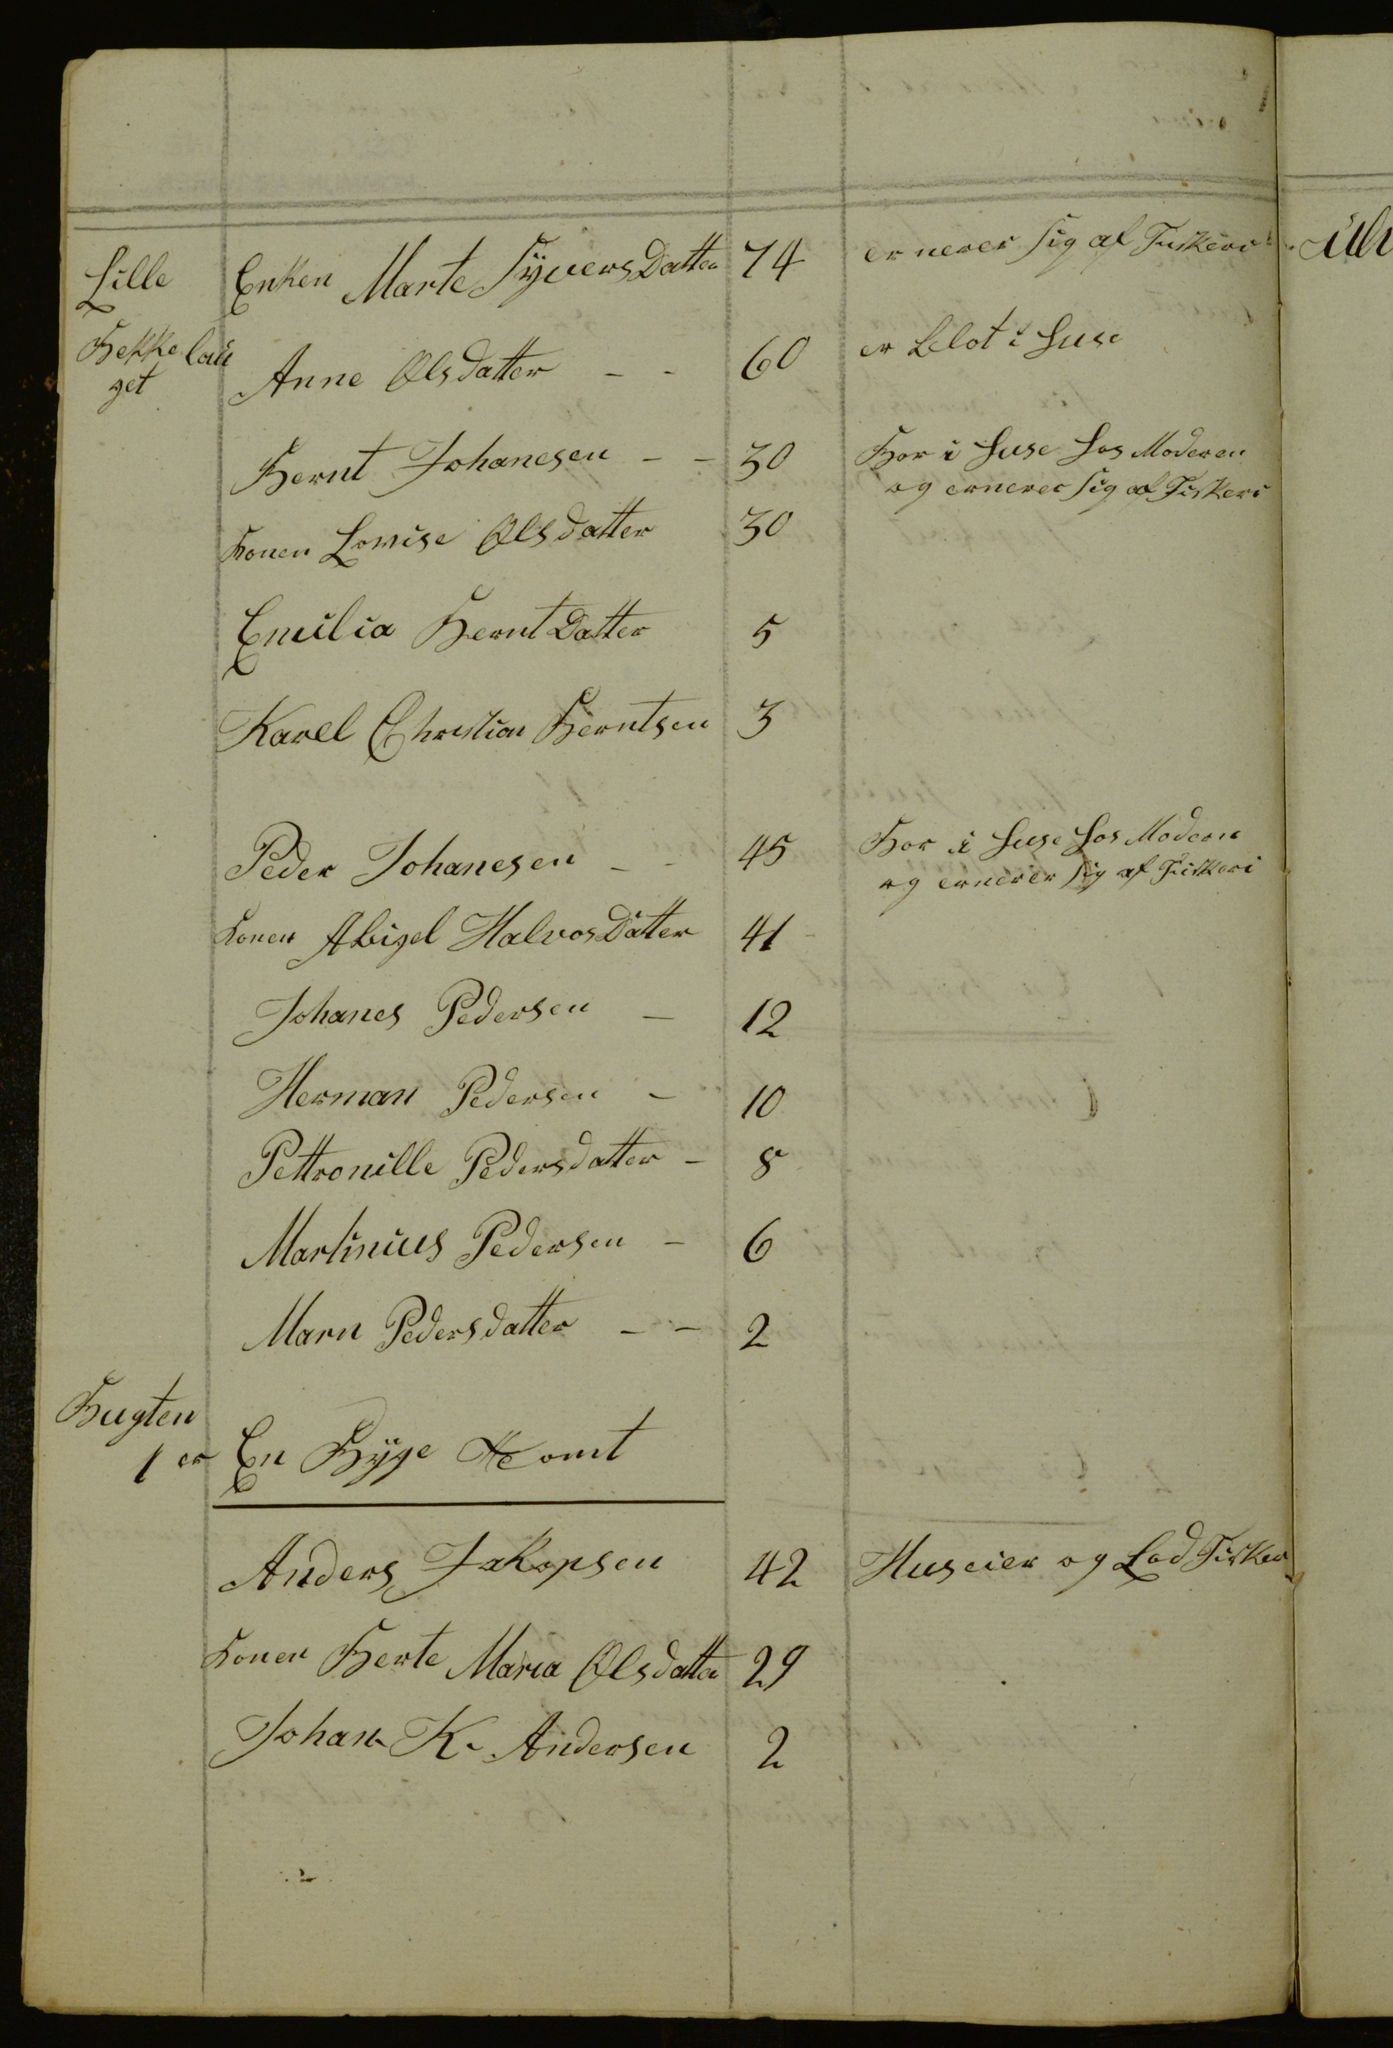 Lille Enken Marte SyversDatter 74 ernerer sig af Fiskeri
Bekkelau
get Anne Olsdatter - - 60 er blot i Huse
Bernt Johanesen - - 30 Bor i Huse hos Moderen
og ernerer sig af Fiskeri
Konen Lovise Olsdatter 30
Emilia BerntDatter 5
Karel Christian Berntsen 3
Peder Johanesen - - 45 Bor i Huse hos Modern
og ernerer sig af Fiskeri
Konen Abigel HalvosDatter 41
Johanes Pedersen - 12
Herman Pedersen - 10
Pettronille Pedersdatter - 8
Martinius Pedersen - 6
Marn Pedersdatter - - 2
Bugten
1 er En Byge Tomt
Anders Jakopsen 42 Huseier og Lod Fisker
Konen Berte Maria Olsdatter 29
Johan K. Andersen 2